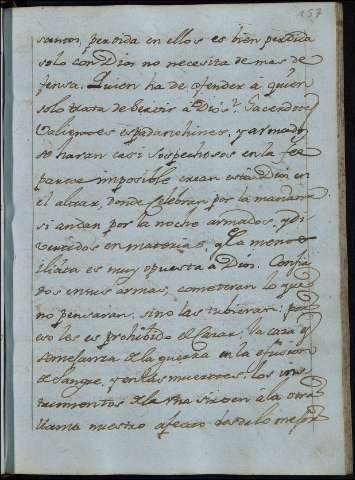 157
santos, perdida en ellos es bien perdida
solo con Dios no necesita de mas de
fensa. Quien ha de ofender à quien
solo trata de servir à Dios? Sacerdotes
Religiosos espadanchines, y armados
se haran casi sospechosos en la fee
parece imposible crean está Dios en
el altar, donde celebran por la mañana
si andan por la noche armados, y di
vertidos en materias, q. la menos
ilícita es muy opuesta à Dios. Confia
dos en sus armas, cometeran lo que
no pensaran, sino las tubieran; por
eso les es prohibido el Cazar, la caza es
semejanza de la guerra en la efusion
de sangre, y en las muertes, los ins
trumentos de la una sirven à la otra
llama nuestro afecto desde lo